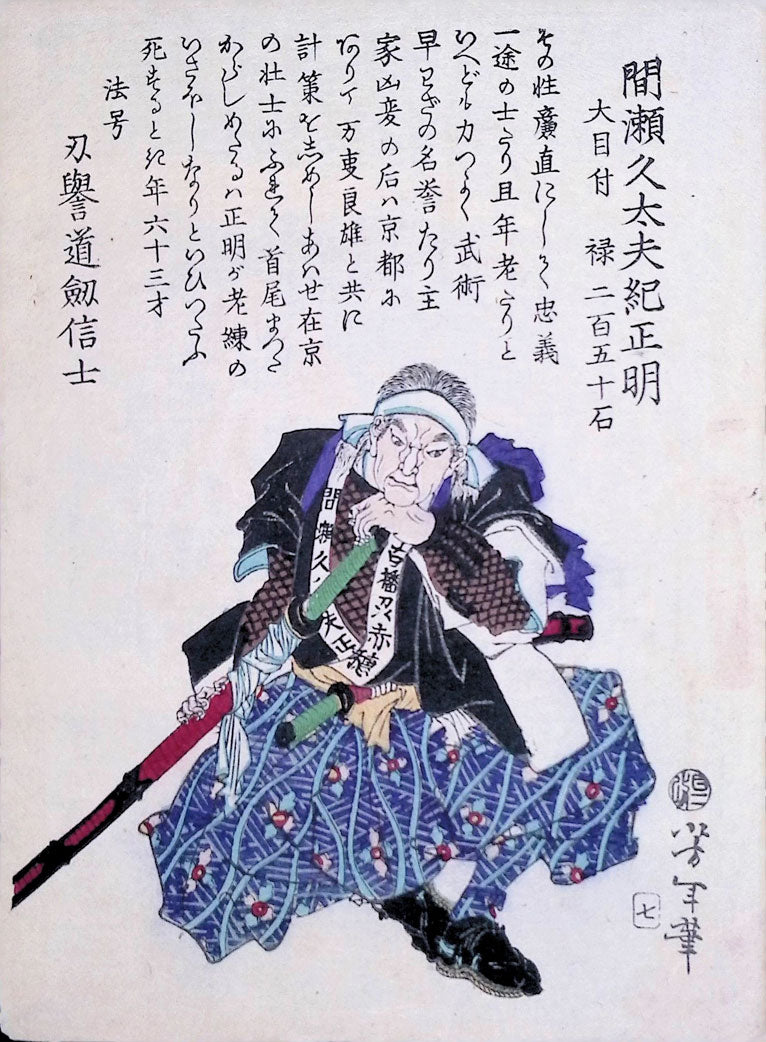 間瀬久太夫紀正明
大目付 禄 二百五十石
その性廉直にして忠義
一途の士なり且年老たりと
いへども力つよく武術
早わざの名誉たり主
家凶変の后ハ京都に
ありて万事良雄と共に
計策をしめしあハせ在京
の壮士にふれて首尾まつた
からしめたるハ正明が老練の
いさほしなりといひつたふ
死するとき年六十三才
法号
刄譽道劔信士
間瀬久太夫正明
赤穂
芳年筆
七